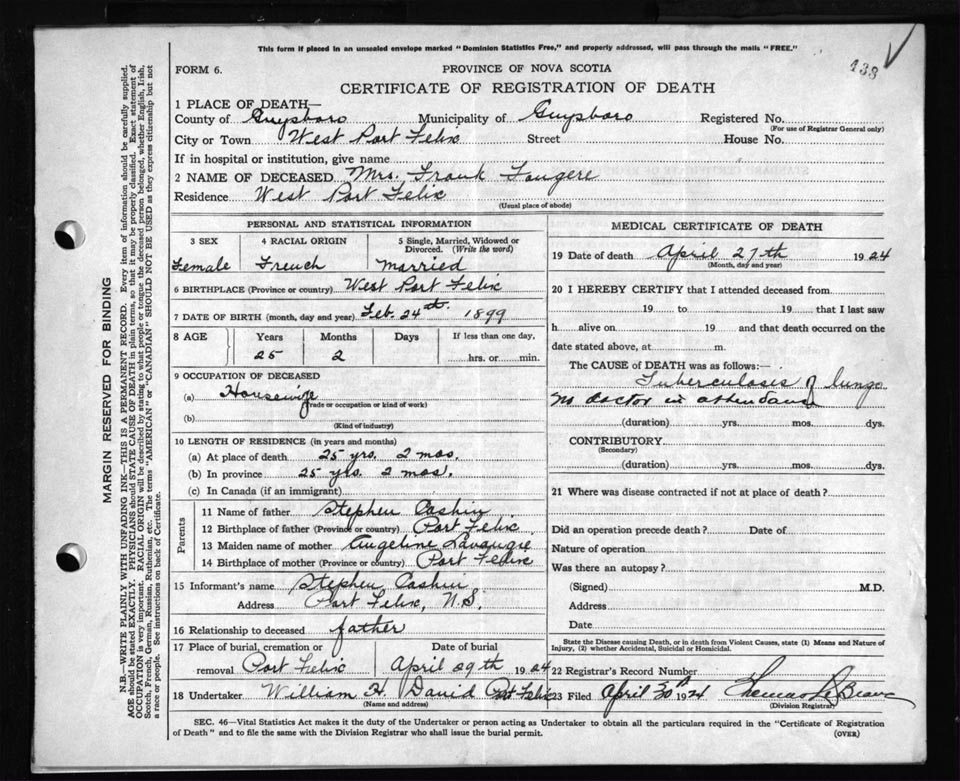 This form if placed in an unsealed envelope marked "Dominion Statistics Free," and properly addressed, will pass through the mails "FREE."
138
FORM 6.
PROVINCE OF NOVA SCOTIA
CERTIFICATE OF REGISTRATION OF DEATH
1 PLACE OF DEATH—
County of Guysboro Municipality of Guysboro Registered No.
(For use of Registrar General only)
City or Town West Port Felix Street House No.
If in hospital or institution, give name
2 NAME OF DECEASED Mrs. Frank Fougere
Residence West Port Felix
(Usual place of abode)
PERSONAL AND STATISTICAL INFORMATION
3 SEX 4 RACIAL ORIGIN 5 Single, Married, Widowed or Divorced. (Write the word)
Female French Married
6 BIRTHPLACE (Province or country) West Port Felix
7 DATE OF BIRTH (month, day and year) Feb. 24th 1899
8 AGE Years Months Days If less than one day,
25 2 hrs. or min.
9 OCCUPATION OF DECEASED
(a) Housewife
(Trade or occupation or kind of work)
(b)
(Kind of industry)
10 LENGTH OF RESIDENCE (in years and months)
(a) At place of death 25 yrs. 2 mos.
(b) In province 25 yrs. 2 mos.
(c) In Canada (if an immigrant)
Parents
11 Name of father Stephen Cashin
12 Birthplace of father (Province or country) Port Felix
13 Maiden name of mother Angeline
14 Birthplace of mother (Province or country) Port Felix
15 Informant's name Stephen Cashin
Address Port Felix, N.S.
16 Relationship to deceased father
17 Place of burial, cremation or Date of burial
removal Port Felix April 29th 1924
18 Undertaker William H. David Port Felix
(Name and address)
MEDICAL CERTIFICATE OF DEATH
19 Date of death April 27th 1924
(Month, day and year)
20 I HEREBY CERTIFY that I attended deceased from
19 to 19 that I last saw
h alive on 19 and that death occurred on the
date stated above, at m.
The CAUSE of DEATH was as follows:—
Tuberculosis of lungs
no doctor in attendance
(duration) yrs. mos. dys.
CONTRIBUTORY
(Secondary)
(duration) yrs. mos. dys.
21 Where was disease contracted if not at place of death?
Did an operation precede death? Date of
Nature of operation
Was there an autopsy?
(Signed) M.D.
Address
Date
State the Disease causing Death, or in death from Violent Causes, state (1) Means and Nature of
Injury, (2) whether Accidental, Suicidal or Homicidal.
22 Registrar's Record Number
23 Filed April 30th 1924 Thomas
(Division Registrar)
SEC. 46—Vital Statistics Act makes it the duty of the Undertaker or person acting as Undertaker to obtain all the particulars required in the "Certificate of Registration
of Death" and to file the same with the Division Registrar who shall issue the burial permit.
(OVER)
MARGIN RESERVED FOR BINDING
N.B.—WRITE PLAINLY WITH UNFADING INK—THIS IS A PERMANENT RECORD. Every item of information should be carefully supplied.
AGE should be stated EXACTLY. PHYSICIANS should STATE CAUSE OF DEATH in plain terms, so that it may be properly classified. Exact statement of
OCCUPATION is very important. RACIAL ORIGIN will be described by stating to what people or tongue the deceased person belonged, whether English, Irish,
Scotch, French, German, Russian, Ruthenian, etc. The terms "AMERICAN" or "CANADIAN" SHOULD NOT BE USED as they express citizenship but not
a race or people. See instructions on back of Certificate.